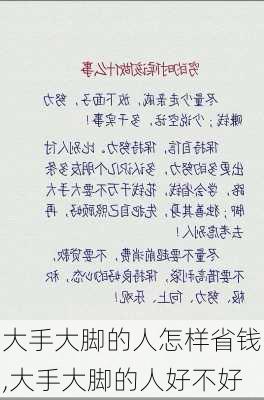 穷的时候该做什么事
尽量少走亲戚，放下面子，努力
赚钱；少说空话，多干实事！
保持自信，保持努力，比别人付
出更多的努力，多认识几个朋友多条
路，学会省钱，花钱千万不要大手大
脚；独善其身，先把自己照顾好，再
去考虑别人！
尽量不要超前消费，不要贷款，
不要借高利贷，保持良好的心态，积
极、努力、向上、乐观。
大手大脚的人怎样省钱
,大手大脚的人好不好